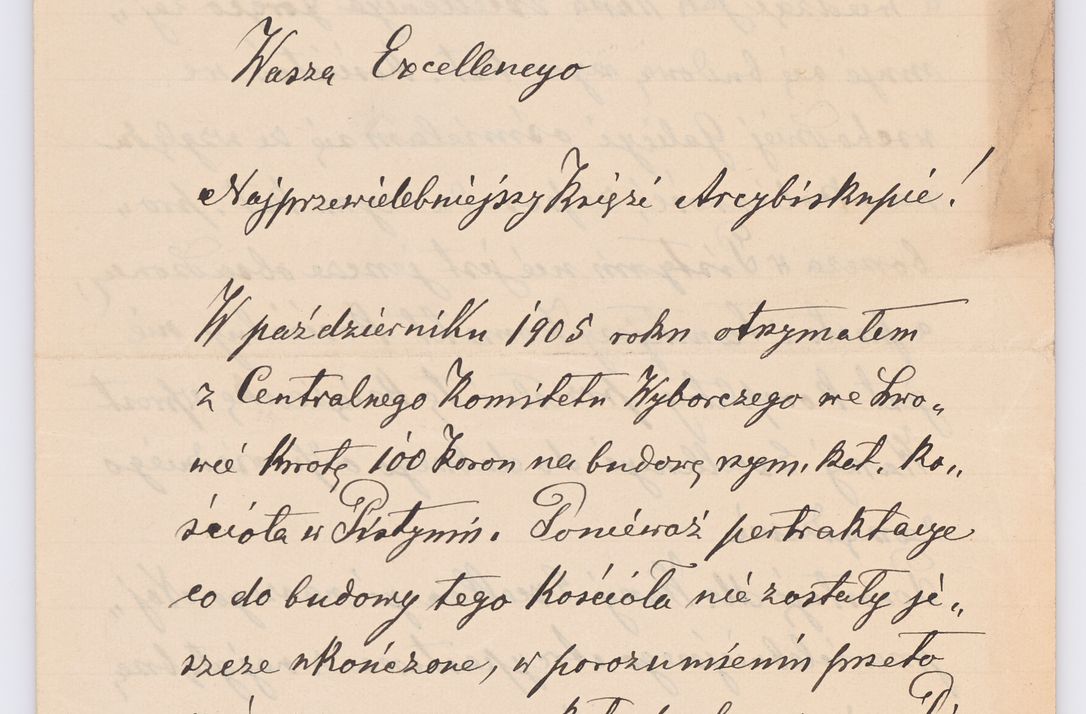 Wasza Excellencyo
Najprzewielebniejszy Księże Arcybiskupie!
W październiku 1905 roku otrzymałem
z Centralnego Komitetu Wyborczego we Lwo„
wie kwotę 100 koron na budowę rzym. kat. ko„
ścioła w Pistyniu. Ponieważ pertraktacye
co do budowy tego kościoła nie zostały je„
szcze ukończone, w porozumieniu przeto